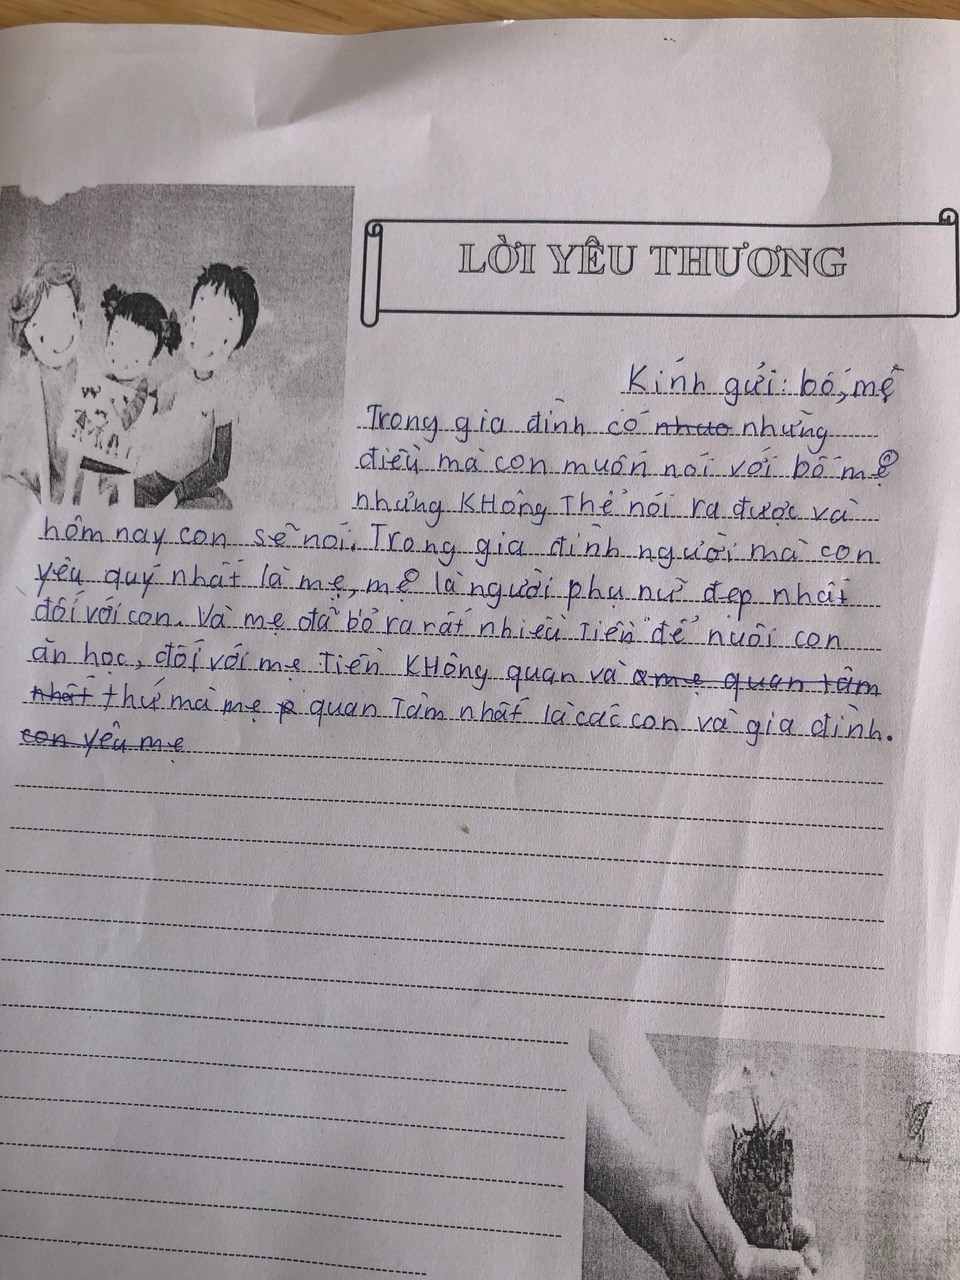 LỜI YÊU THƯƠNG
Kính gửi: bố, mẹ
Trong gia đình có nhưng những
điều mà con muốn nói với bố mẹ
nhưng KHông Thể nói ra được và
hôm nay con sẽ nói. Trong gia đình người mà con
yêu quý nhất là mẹ, mẹ là người phụ nữ đẹp nhất
đối với con. Và mẹ đã bỏ ra rất nhiều Tiền để nuôi con
ăn học, đối với mẹ Tiền KHông quan và mẹ quan tâm
nhất thứ mà mẹ quan Tâm nhất là các con và gia đình.
con yêu mẹ